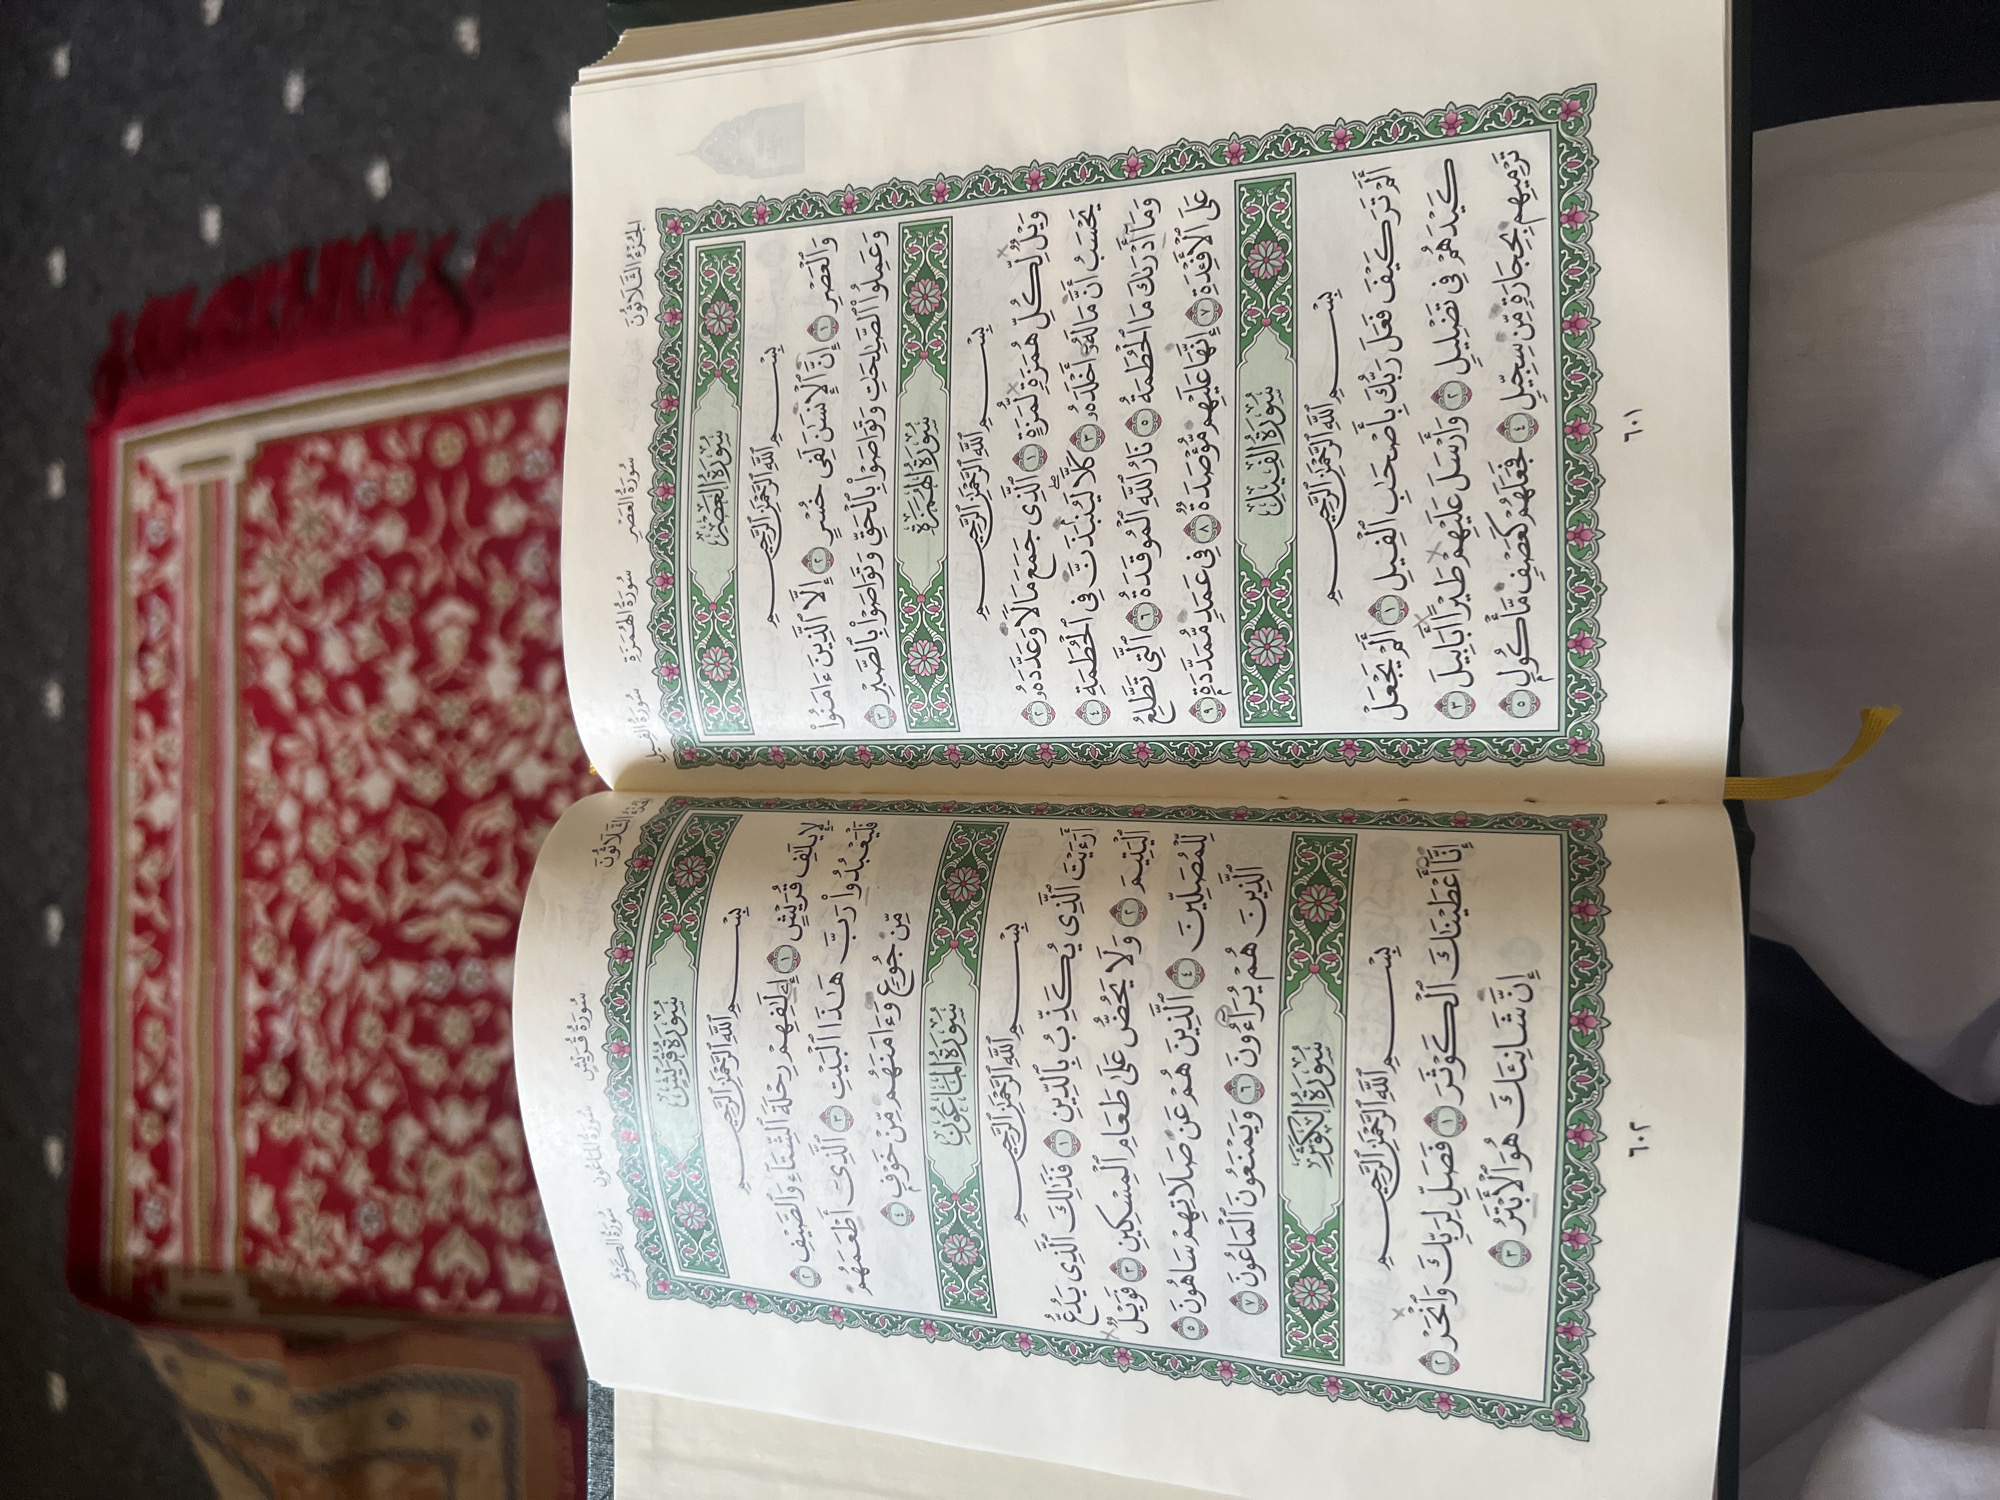 الجزء الثلاثون
سورة العصر
سورة الهمزة
سورة الفيل
سُورَةُ العَصْرِ
بِسْمِ ٱللَّهِ ٱلرَّحْمَٰنِ ٱلرَّحِيمِ
وَٱلْعَصْرِ ١ إِنَّ ٱلْإِنسَٰنَ لَفِى خُسْرٍ ٢ إِلَّا ٱلَّذِينَ ءَامَنُوا۟
وَعَمِلُوا۟ ٱلصَّٰلِحَٰتِ وَتَوَاصَوْا۟ بِٱلْحَقِّ وَتَوَاصَوْا۟ بِٱلصَّبْرِ ٣
سُورَةُ الهُمَزَةِ
بِسْمِ ٱللَّهِ ٱلرَّحْمَٰنِ ٱلرَّحِيمِ
وَيْلٌ لِّكُلِّ هُمَزَةٍ لُّمَزَةٍ ١ ٱلَّذِى جَمَعَ مَالًا وَعَدَّدَهُۥ ٢
يَحْسَبُ أَنَّ مَالَهُۥٓ أَخْلَدَهُۥ ٣ كَلَّا ۖ لَيُنۢبَذَنَّ فِى ٱلْحُطَمَةِ ٤
وَمَآ أَدْرَىٰكَ مَا ٱلْحُطَمَةُ ٥ نَارُ ٱللَّهِ ٱلْمُوقَدَةُ ٦ ٱلَّتِى تَطَّلِعُ
عَلَى ٱلْأَفْـِٔدَةِ ٧ إِنَّهَا عَلَيْهِم مُّؤْصَدَةٌ ٨ فِى عَمَدٍ مُّمَدَّدَةٍۭ ٩
سُورَةُ الفِيلِ
بِسْمِ ٱللَّهِ ٱلرَّحْمَٰنِ ٱلرَّحِيمِ
أَلَمْ تَرَ كَيْفَ فَعَلَ رَبُّكَ بِأَصْحَٰبِ ٱلْفِيلِ ١ أَلَمْ يَجْعَلْ
كَيْدَهُمْ فِى تَضْلِيلٍ ٢ وَأَرْسَلَ عَلَيْهِمْ طَيْرًا أَبَابِيلَ ٣
تَرْمِيهِم بِحِجَارَةٍ مِّن سِجِّيلٍ ٤ فَجَعَلَهُمْ كَعَصْفٍ مَّأْكُولٍۭ ٥
٦٠١
الجزء الثلاثون
سورة قريش
سورة الماعون
سورة الكوثر
سُورَةُ قُرَيْشٍ
بِسْمِ ٱللَّهِ ٱلرَّحْمَٰنِ ٱلرَّحِيمِ
لِإِيلَٰفِ قُرَيْشٍ ١ إِۦلَٰفِهِمْ رِحْلَةَ ٱلشِّتَآءِ وَٱلصَّيْفِ ٢
فَلْيَعْبُدُوا۟ رَبَّ هَٰذَا ٱلْبَيْتِ ٣ ٱلَّذِىٓ أَطْعَمَهُم
مِّن جُوعٍ وَءَامَنَهُم مِّنْ خَوْفٍۭ ٤
سُورَةُ المَاعُونِ
بِسْمِ ٱللَّهِ ٱلرَّحْمَٰنِ ٱلرَّحِيمِ
أَرَءَيْتَ ٱلَّذِى يُكَذِّبُ بِٱلدِّينِ ١ فَذَٰلِكَ ٱلَّذِى يَدُعُّ
ٱلْيَتِيمَ ٢ وَلَا يَحُضُّ عَلَىٰ طَعَامِ ٱلْمِسْكِينِ ٣ فَوَيْلٌ
لِّلْمُصَلِّينَ ٤ ٱلَّذِينَ هُمْ عَن صَلَاتِهِمْ سَاهُونَ ٥
ٱلَّذِينَ هُمْ يُرَآءُونَ ٦ وَيَمْنَعُونَ ٱلْمَاعُونَ ٧
سُورَةُ الكَوْثَرِ
بِسْمِ ٱللَّهِ ٱلرَّحْمَٰنِ ٱلرَّحِيمِ
إِنَّآ أَعْطَيْنَٰكَ ٱلْكَوْثَرَ ١ فَصَلِّ لِرَبِّكَ وَٱنْحَرْ ٢
إِنَّ شَانِئَكَ هُوَ ٱلْأَبْتَرُ ٣
٦٠٢